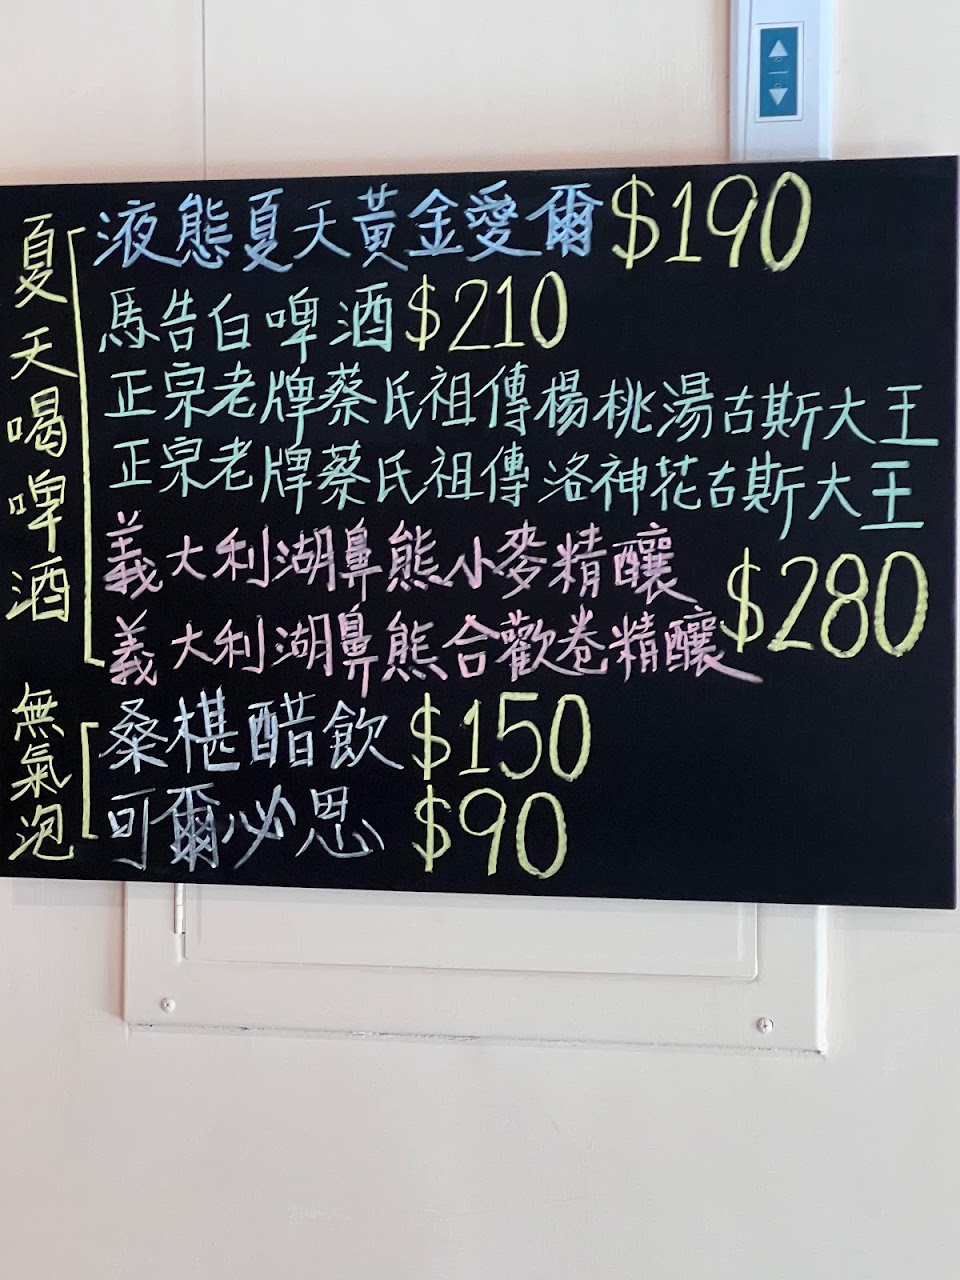 夏天喝啤酒
液態夏天黃金愛爾$190
馬告白啤酒$210
正宗老牌蔡氏祖傳楊桃湯古斯大王
正宗老牌蔡氏祖傳洛神花古斯大王
義大利湖鼻熊小麥精釀
義大利湖鼻熊合歡卷精釀
$280
無氣泡
桑椹醋飲$150
可爾必思$90